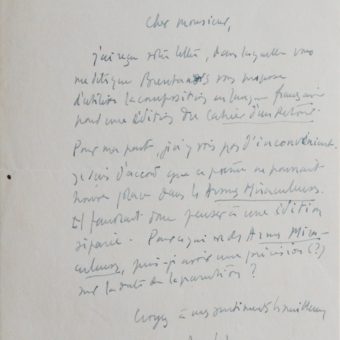 Cher Monsieur,
j'ai reçu votre lettre, dans laquelle vous
me dites que Brentano's vous propose
d'utiliser la composition en langue française
pour une édition du Cahier d'un Retour.
Pour ma part, je n'y vois pas d'inconvénient.
je suis d'accord que ce poème ne pourrait
trouver place dans les Armes Miraculeuses.
Il faudrait donc penser à une édition
séparée. Pour ce qui est des Armes Mira-
culeuses, puis-je avoir une précision (?)
sur la date de la parution ?
Croyez à mes sentiments les meilleurs